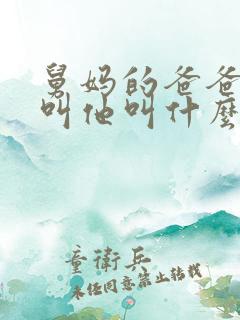 舅妈的爸爸
叫他叫什麽
童衛兵
未经同意禁止转载